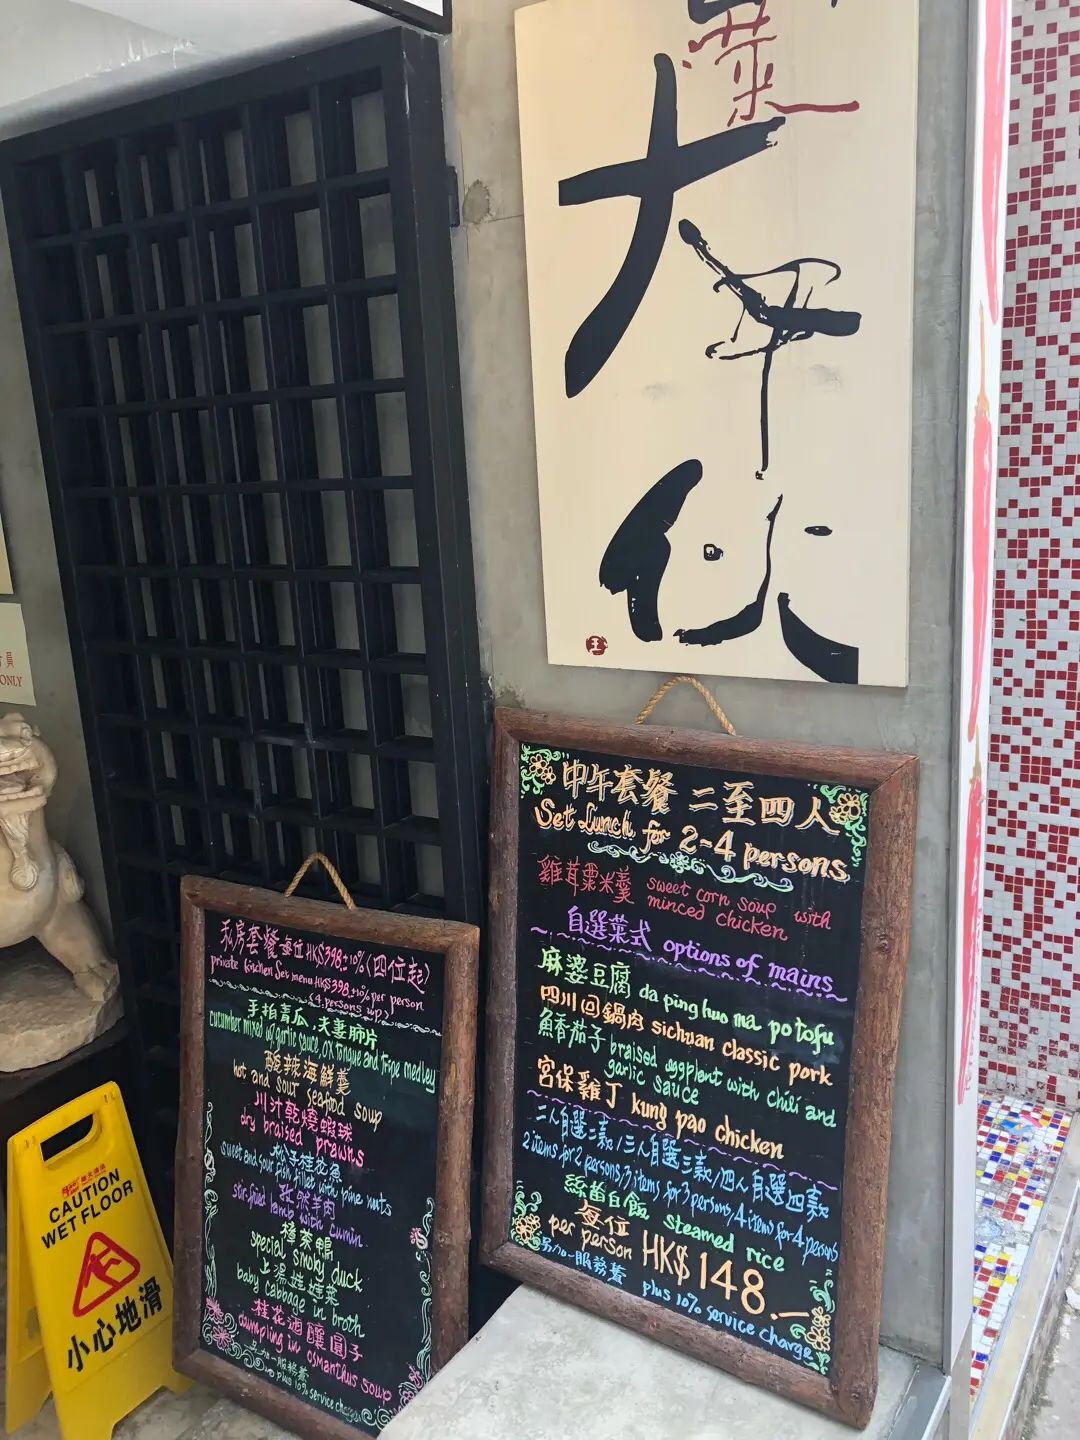 菜
大平伙
王
員
ONLY
CAUTION
WET FLOOR
小心地滑
私房套餐每位HK$398±10%(四位起)
private kitchen Set menu HK$398+10% per person
(4 persons up)
手拍青瓜.夫妻肺片
cucumber mixed w/garlic sauce ox tongue and tripe medley
酸辣海鮮羹
hot and sour seafood soup
川汁乾燒蝦球
dry braised prawns
松子桂花魚
sweet and sour fish fillet with pine nuts
孜然羊肉
stir-fried lamb with cumin
樟茶鴨
special smoky duck
上湯娃娃菜
baby cabbage in broth
桂花酒釀圓子
dumpling in osmanthus soup
另加一服務費
plus 10% service charge
中午套餐 二至四人
Set Lunch for 2-4 persons
雞茸粟米羹 sweet corn soup with
minced chicken
自選菜式 options of mains
麻婆豆腐 da ping huo ma po tofu
四川回鍋肉 sichuan classic pork
魚香茄子 braised eggplant with chili and
garlic sauce
宮保雞丁 kung pao chicken
二人自選二款/三人自選三款/四人自選四款
2 items for 2 persons/3 items for 3 persons/4 items for 4 persons
絲苗白飯 steamed rice
每位
per person HK$148.—
另加一服務費 plus 10% service charge